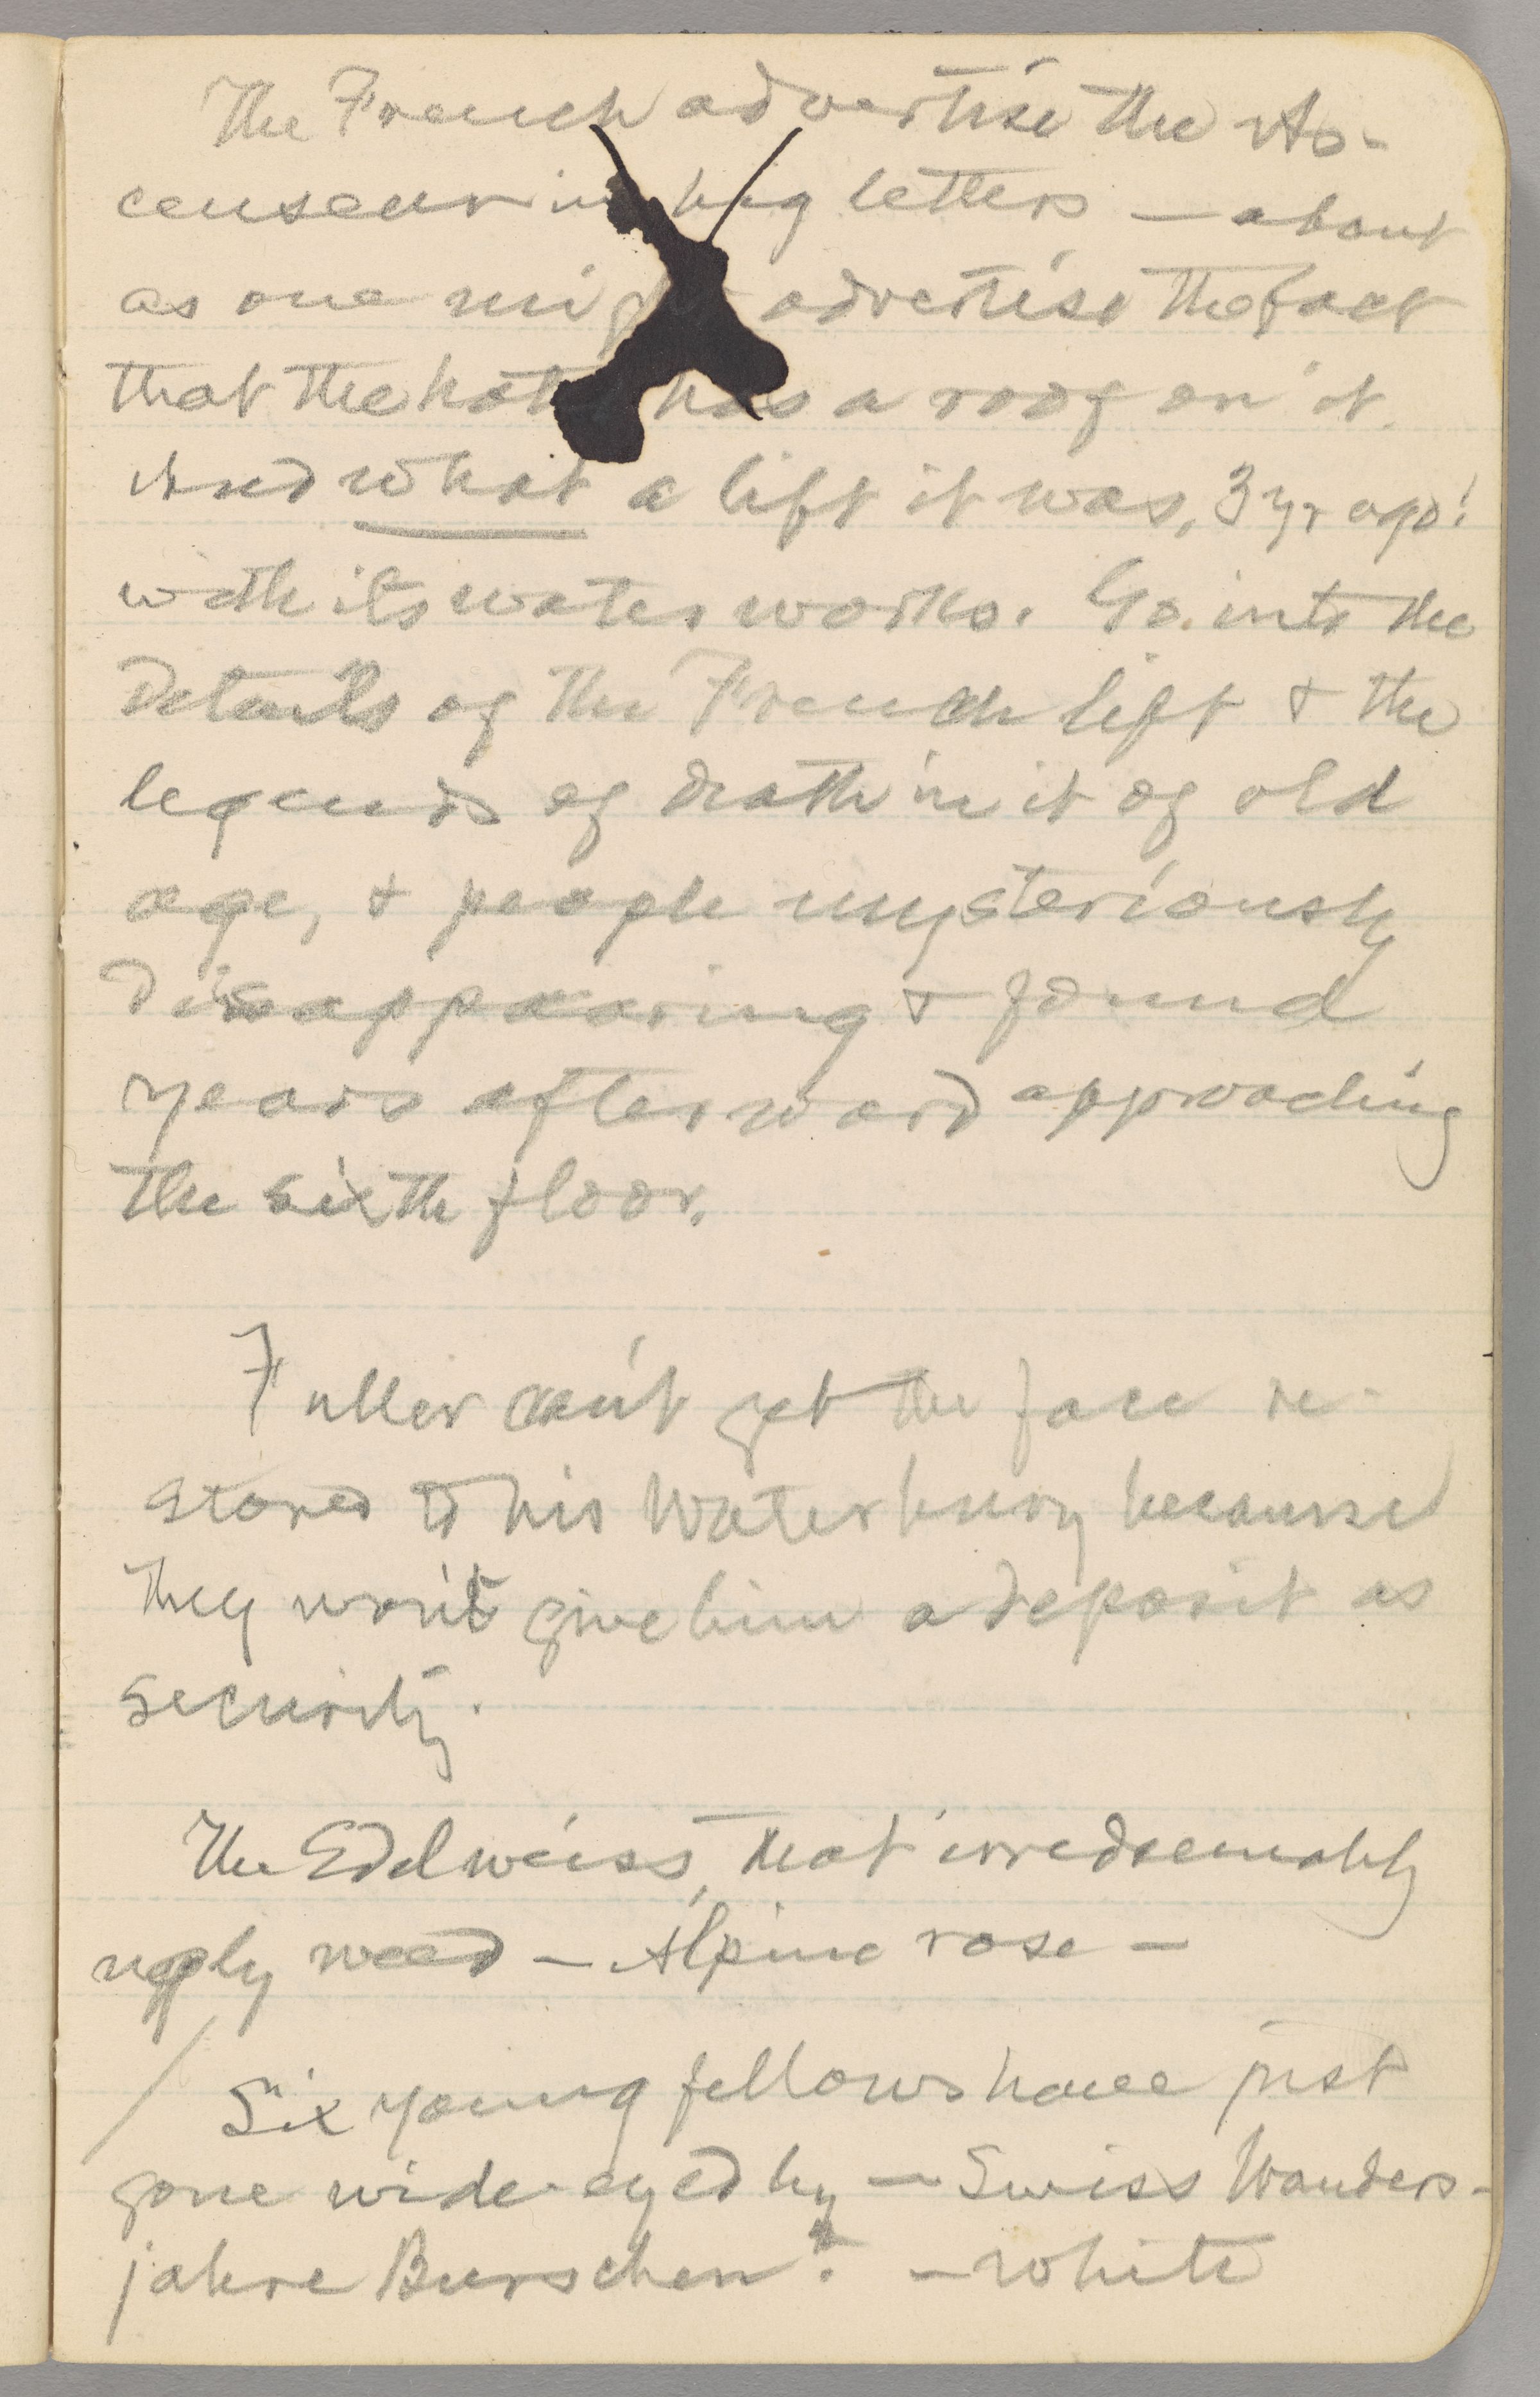 The French advertise the As-
censeur in big letters — about
as one might advertise the fact
that the hotel has a roof on it.
And what a lift it was, 3 yr ago!
with its water works. Go into the
details of the French lift & the
legends of death in it of old
age, & people mysteriously
disappearing & found
years afterward approaching
the sixth floor.
Fuller can't get the face re-
stored to his Waterbury because
they won't give him a deposit as
security.
The Edelweiss, that irredeemably
ugly weed — Alpine rose —
Six young fellows have just
gone wide-eyed by — Swiss Wanders-
jahre Burschen? — white